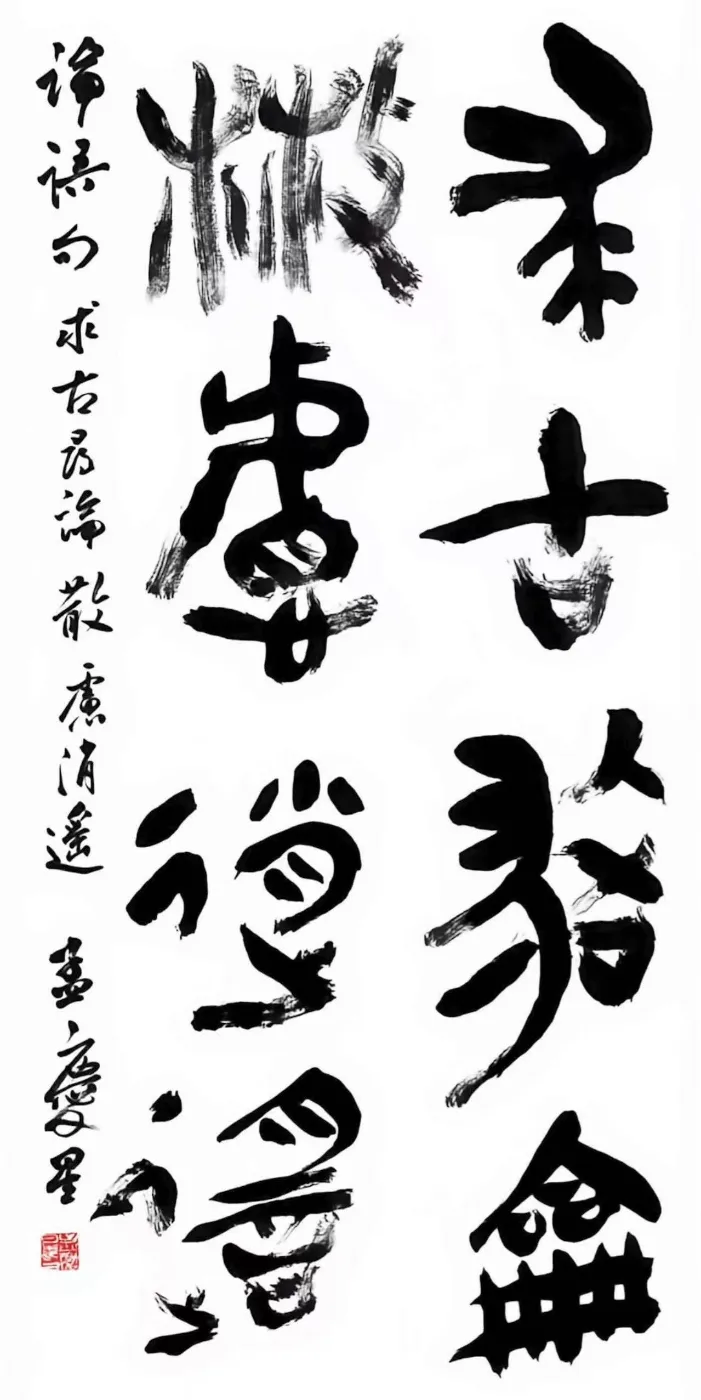 求古尋論
散慮逍遙
論語句 求古尋論 散慮消遥 孟慶星